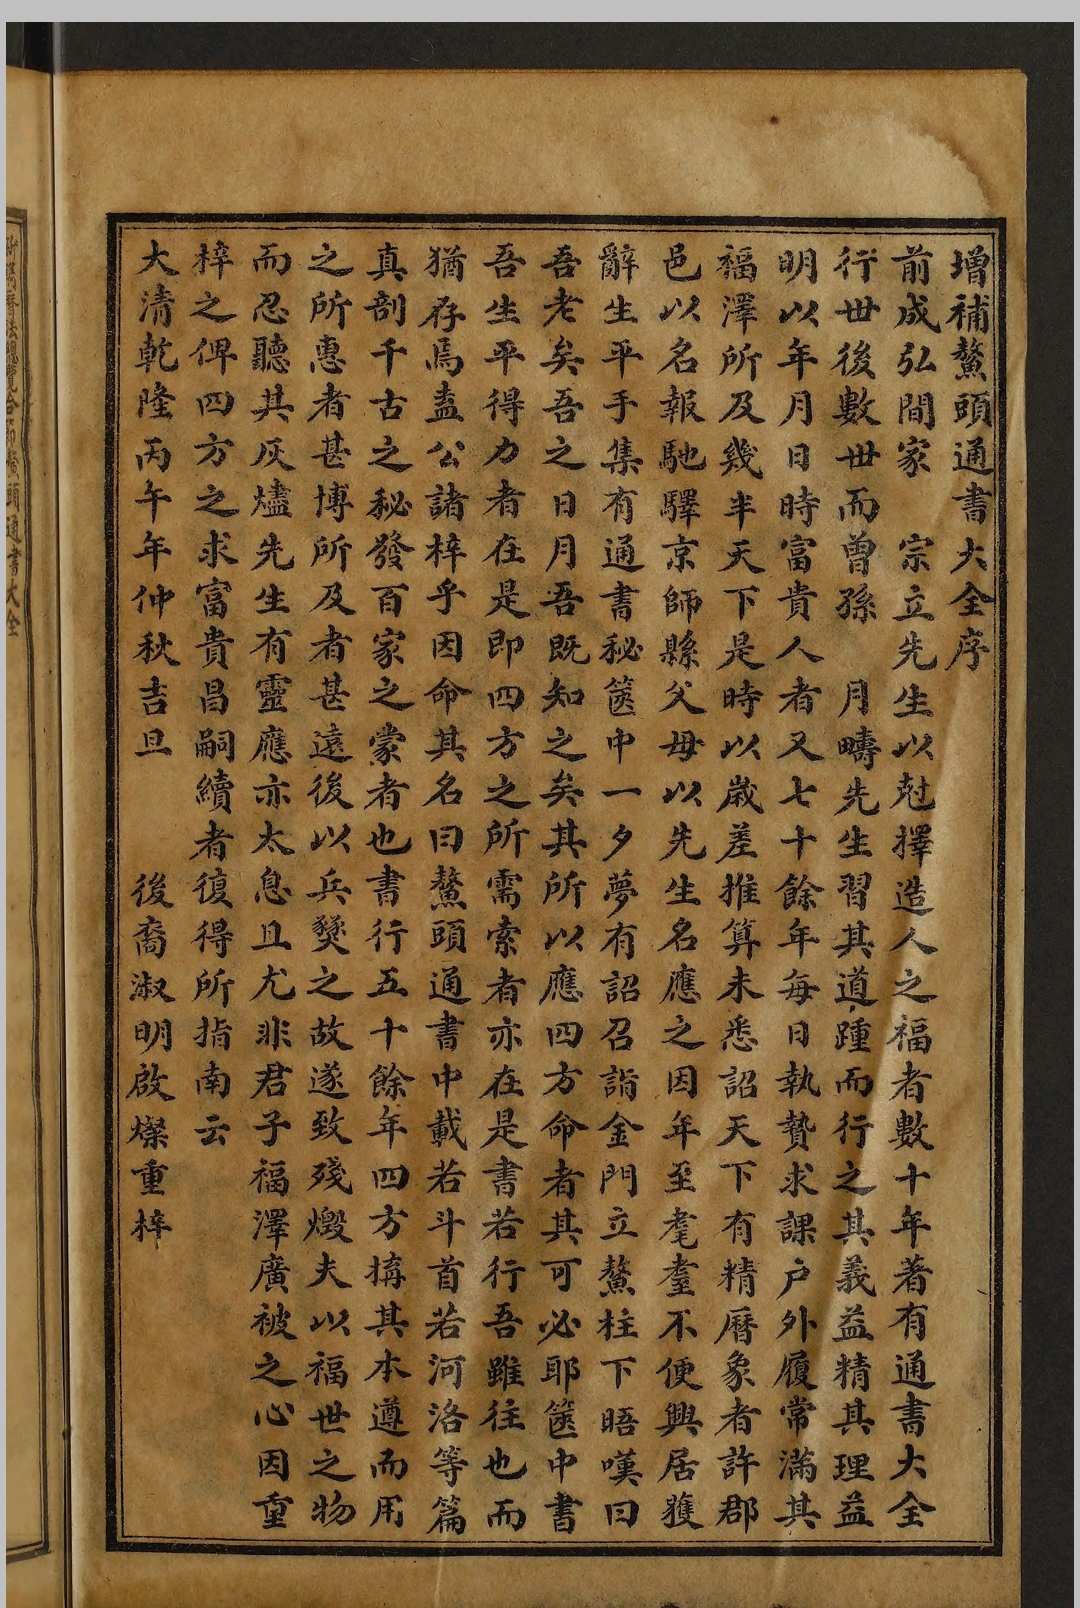 增補鰲頭通書大全序
前成弘間家　宗立先生以尅擇造人之福者數十年著有通書大全
行世後數世而曾孫　月疇先生習其道踵而行之其義益精其理益
明以年月日時富貴人者又七十餘年每日執贄求課戶外履常滿其
福澤所及幾半天下是時以歲差推算未悉詔天下有精曆象者許郡
邑以名報馳驛京師縣父母以先生名應之因年至耄耋不便興居獲
辭生平手集有通書秘篋中一夕夢有詔召詣金門立鰲柱下晤嘆曰
吾老矣吾之日月吾既知之矣其所以應四方命者其可必耶篋中書
吾生平得力者在是即四方之所需索者亦在是書若行吾雖往也而
猶存焉盍公諸梓乎因命其名曰鰲頭通書中載若斗首若河洛等篇
真剖千古之秘發百家之蒙者也書行五十餘年四方搆其本遵而用
之所惠者甚博所及者甚遠後以兵燹之故遂致殘燬夫以福世之物
而忍聽其灰燼先生有靈應亦太息且尤非君子福澤廣被之心因重
梓之俾四方之求富貴昌嗣續者復得所指南云
大清乾隆丙午年仲秋吉旦　後裔淑明啟燦重梓
頭通書大全